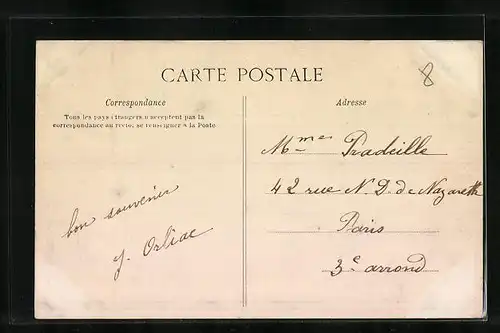 CARTE POSTALE
8
Correspondance
Tous les pays étrangers n'acceptent pas la
correspondance au recto, se renseigner à la Poste
bon souvenir
J. Orliac
Adresse
Mmes Pradeille
42 rue N. D. de Nazareth
Paris
3e arrond